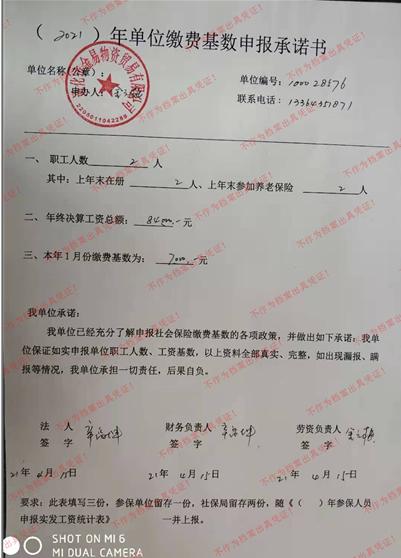 （2021）年单位缴费基数申报承诺书
单位名称（公章）：
单位编号：100028576
申办人：
联系电话：13364351871
易物资贸易有限公司
2205011042288
一、 职工人数 2 人
其中：上年末在册 2 人、上年末参加养老保险 2 人
二、 年终决算工资总额： 84000.- 元
三、本年1月份缴费基数为： 7000.- 元
我单位承诺：
我单位已经充分了解申报社会保险缴费基数的各项政策，并做出如下承诺：我单
位保证如实申报单位职工人数、工资基数，以上资料全部真实、完整，如出现漏报、瞒
报等情况，我单位承担一切责任，后果自负。
法 人 财务负责人 劳资负责人
签 字 签 字 签 字
21年 4月15日 21年 4月15日 21年 4月15日
要求：此表填写三份，参保单位留存一份，社保局留存两份，随《（ ）年参保人员
申报实发工资统计表》 一并上报。
不作为档案出具凭证！
SHOT ON MI 6
MI DUAL CAMERA